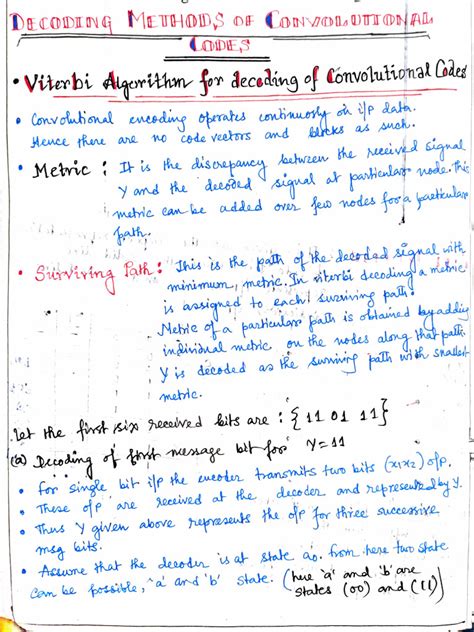 DECODING METHODS OF CONVOLUTIONAL
CODES
• Viterbi Algorithm for decoding of Convolutional Codes
• Convolutional encoding operates continuosly on i/p data.
Hence there are no code vectors and blocks as such.
• Metric : It is the discrepancy between the received signal
Y and the decoded signal at particular node. This
metric can be added over few nodes for a particular
path.
• Surviving Path : This is the path of the decoded signal with
minimum metric. In viterbi decoding a metric
is assigned to each surviving path.
Metric of a particular path is obtained by adding
individual metric on the nodes along that path.
Y is decoded as the surviving path with smallest
metric.
Let the first six received bits are : {11 01 11}
(a) Decoding of first message bit for Y=11
• For single bit i/p the encoder transmits two bits (x1x2) o/p.
• These o/p are received at the decoder and represented by Y.
• Thus Y given above represents the o/p for three successive
msg bits.
• Assume that the decoder is at state a0. from here two state
can be possible, 'a' and 'b' state. (here 'a' and 'b' are
states (00) and (11))